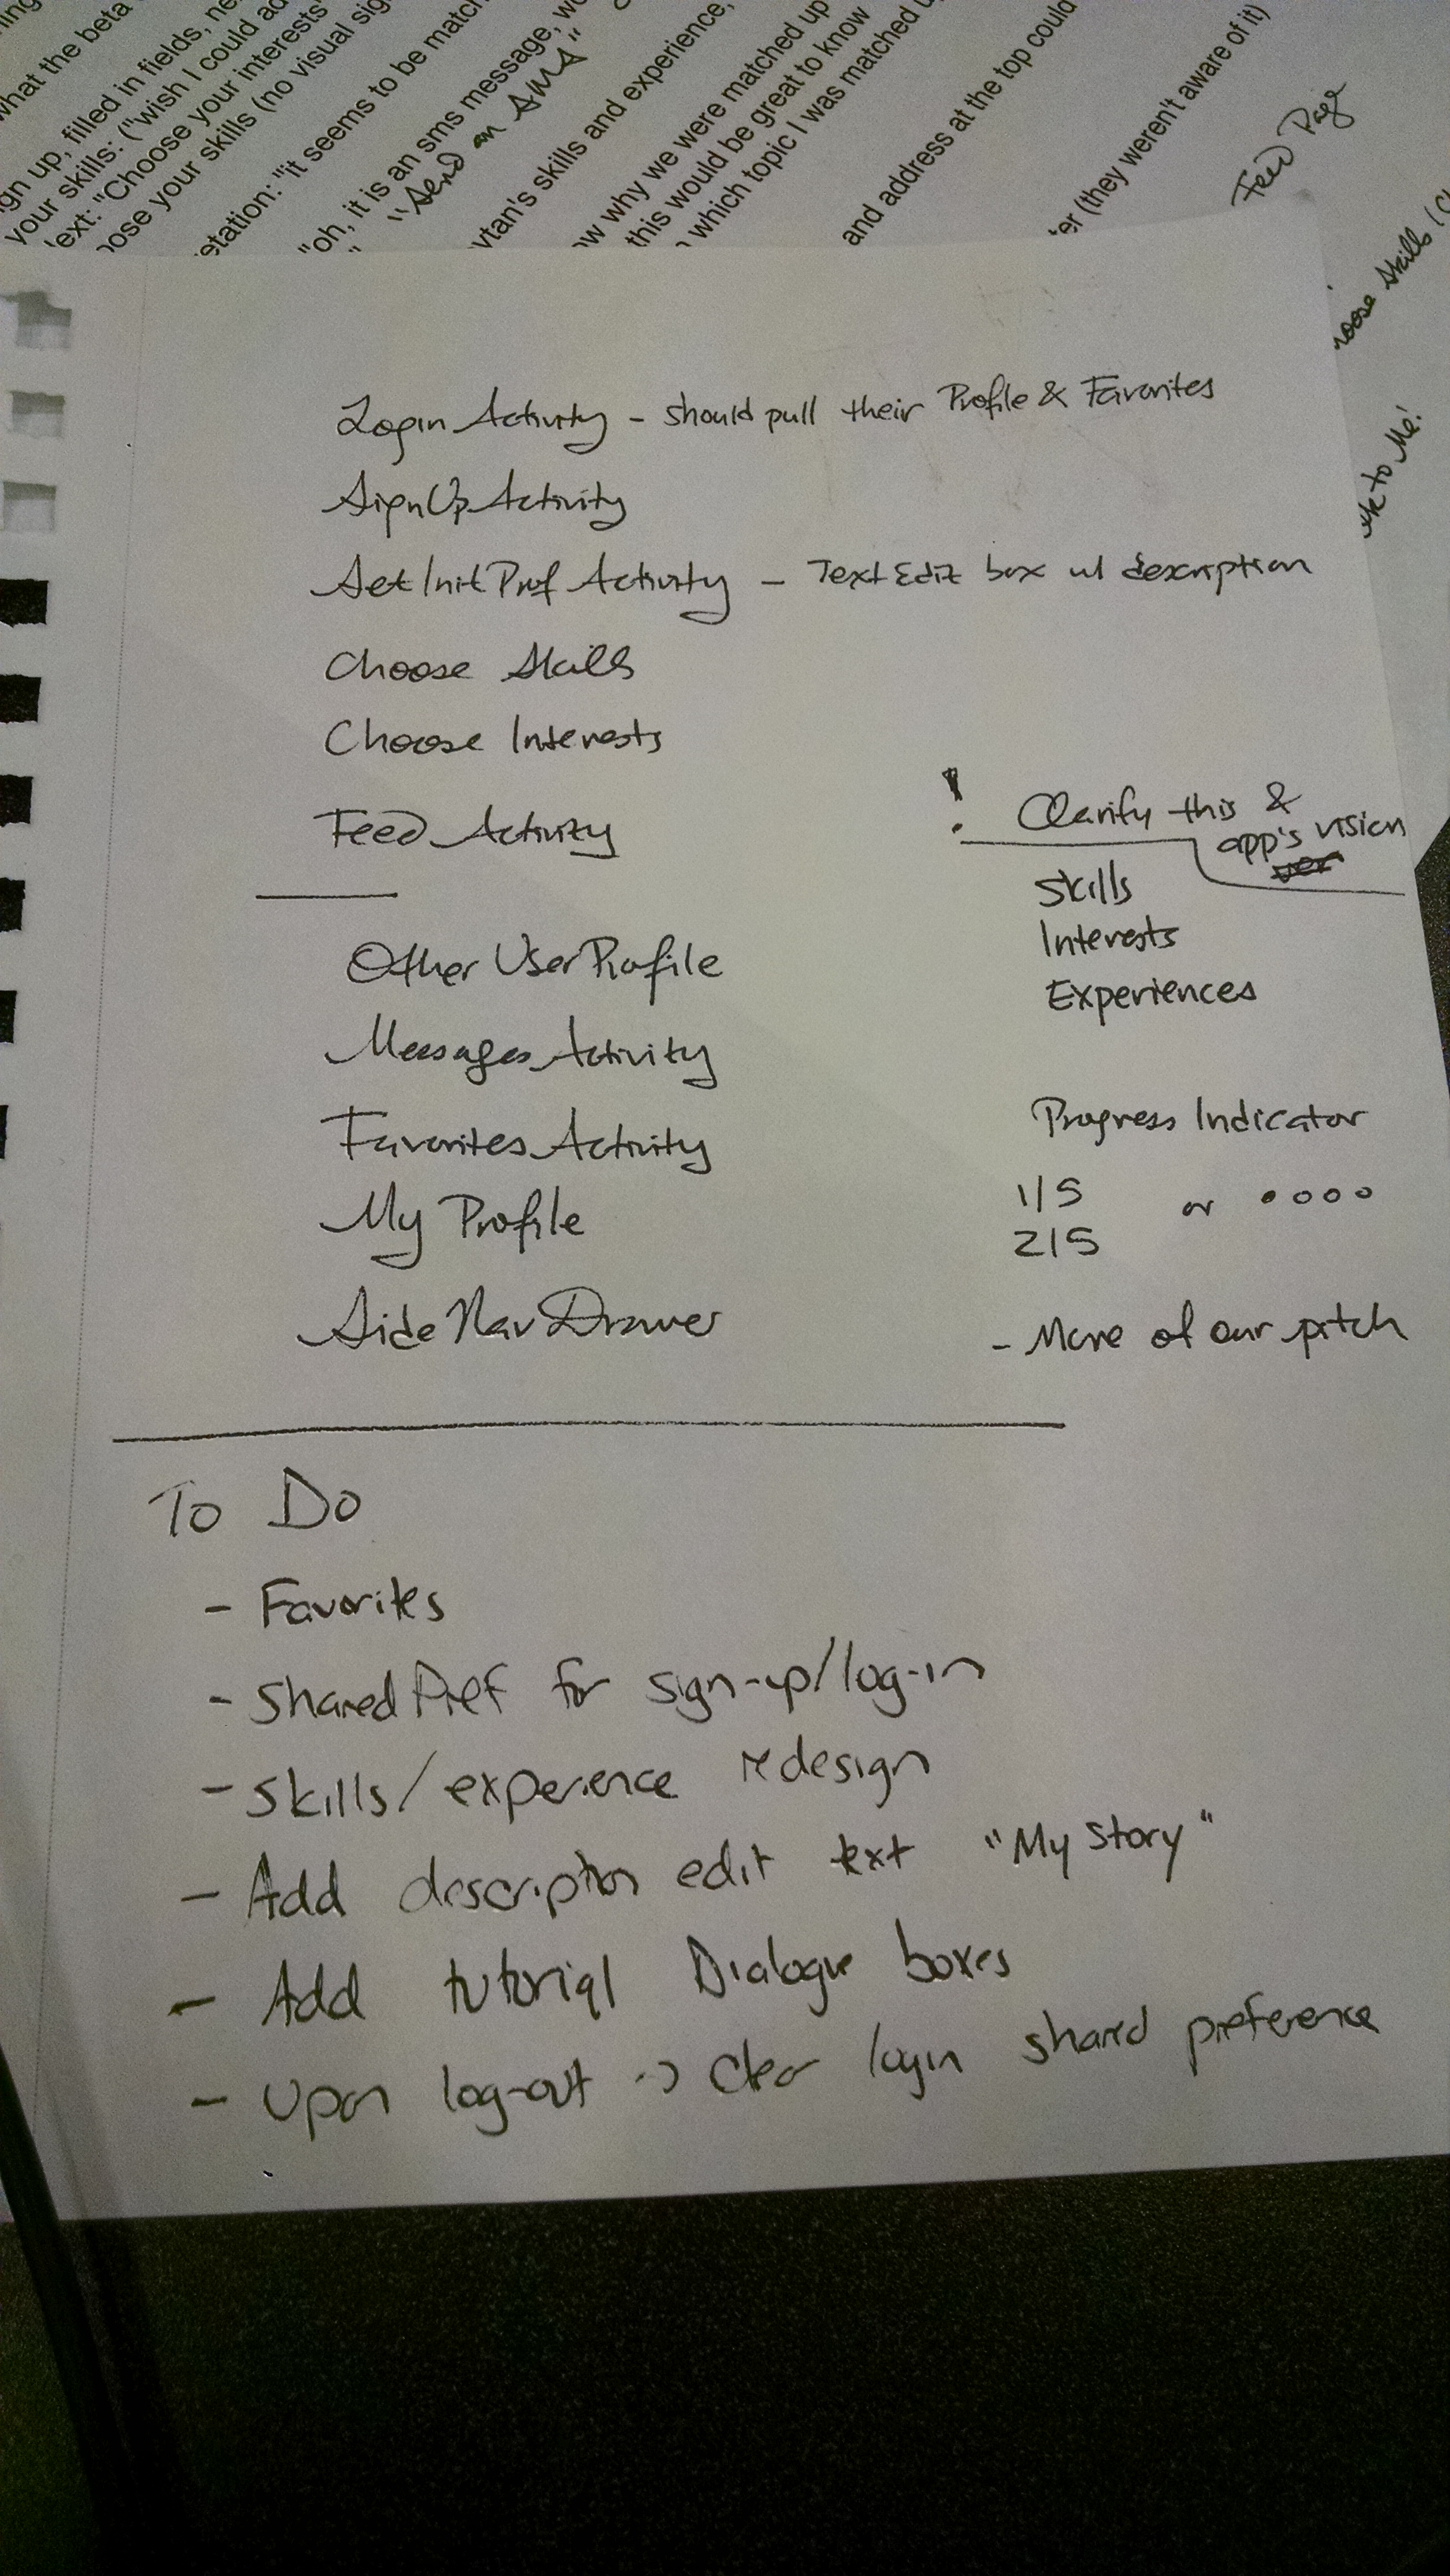 what the beta
sign up, filled in fields, ne
your skills: ("wish I could ad
text: "Choose your interests"
oose your skills (no visual sig
etation: "it seems to be match
"oh, it is an sms message, wo
"Send an SMS"
vtan's skills and experience,
ow why we were matched up
this would be great to know
which topic I was matched u
and address at the top could
er (they weren't aware of it)
Feed Page
oose Skills (C
to Me!
Login Activity - should pull their Profile & Favorites
SignUp Activity
SetInitProf Activity - Text Edit box w/ description
Choose Skills
Choose Interests
Feed Activity
! Clarify this &
app's vision
Skills
Interests
Experiences
Other UserProfile
Messages Activity
Favorites Activity
My Profile
SideNavDrawer
Progress Indicator
1/5 or
2/5
- More of our pitch
To Do
- Favorites
- SharedPref for sign-up/log-in
- Skills/experience redesign
- Add description edit text "My Story"
- Add tutorial Dialogue boxes
- Upon log-out -> Clear login shared preference